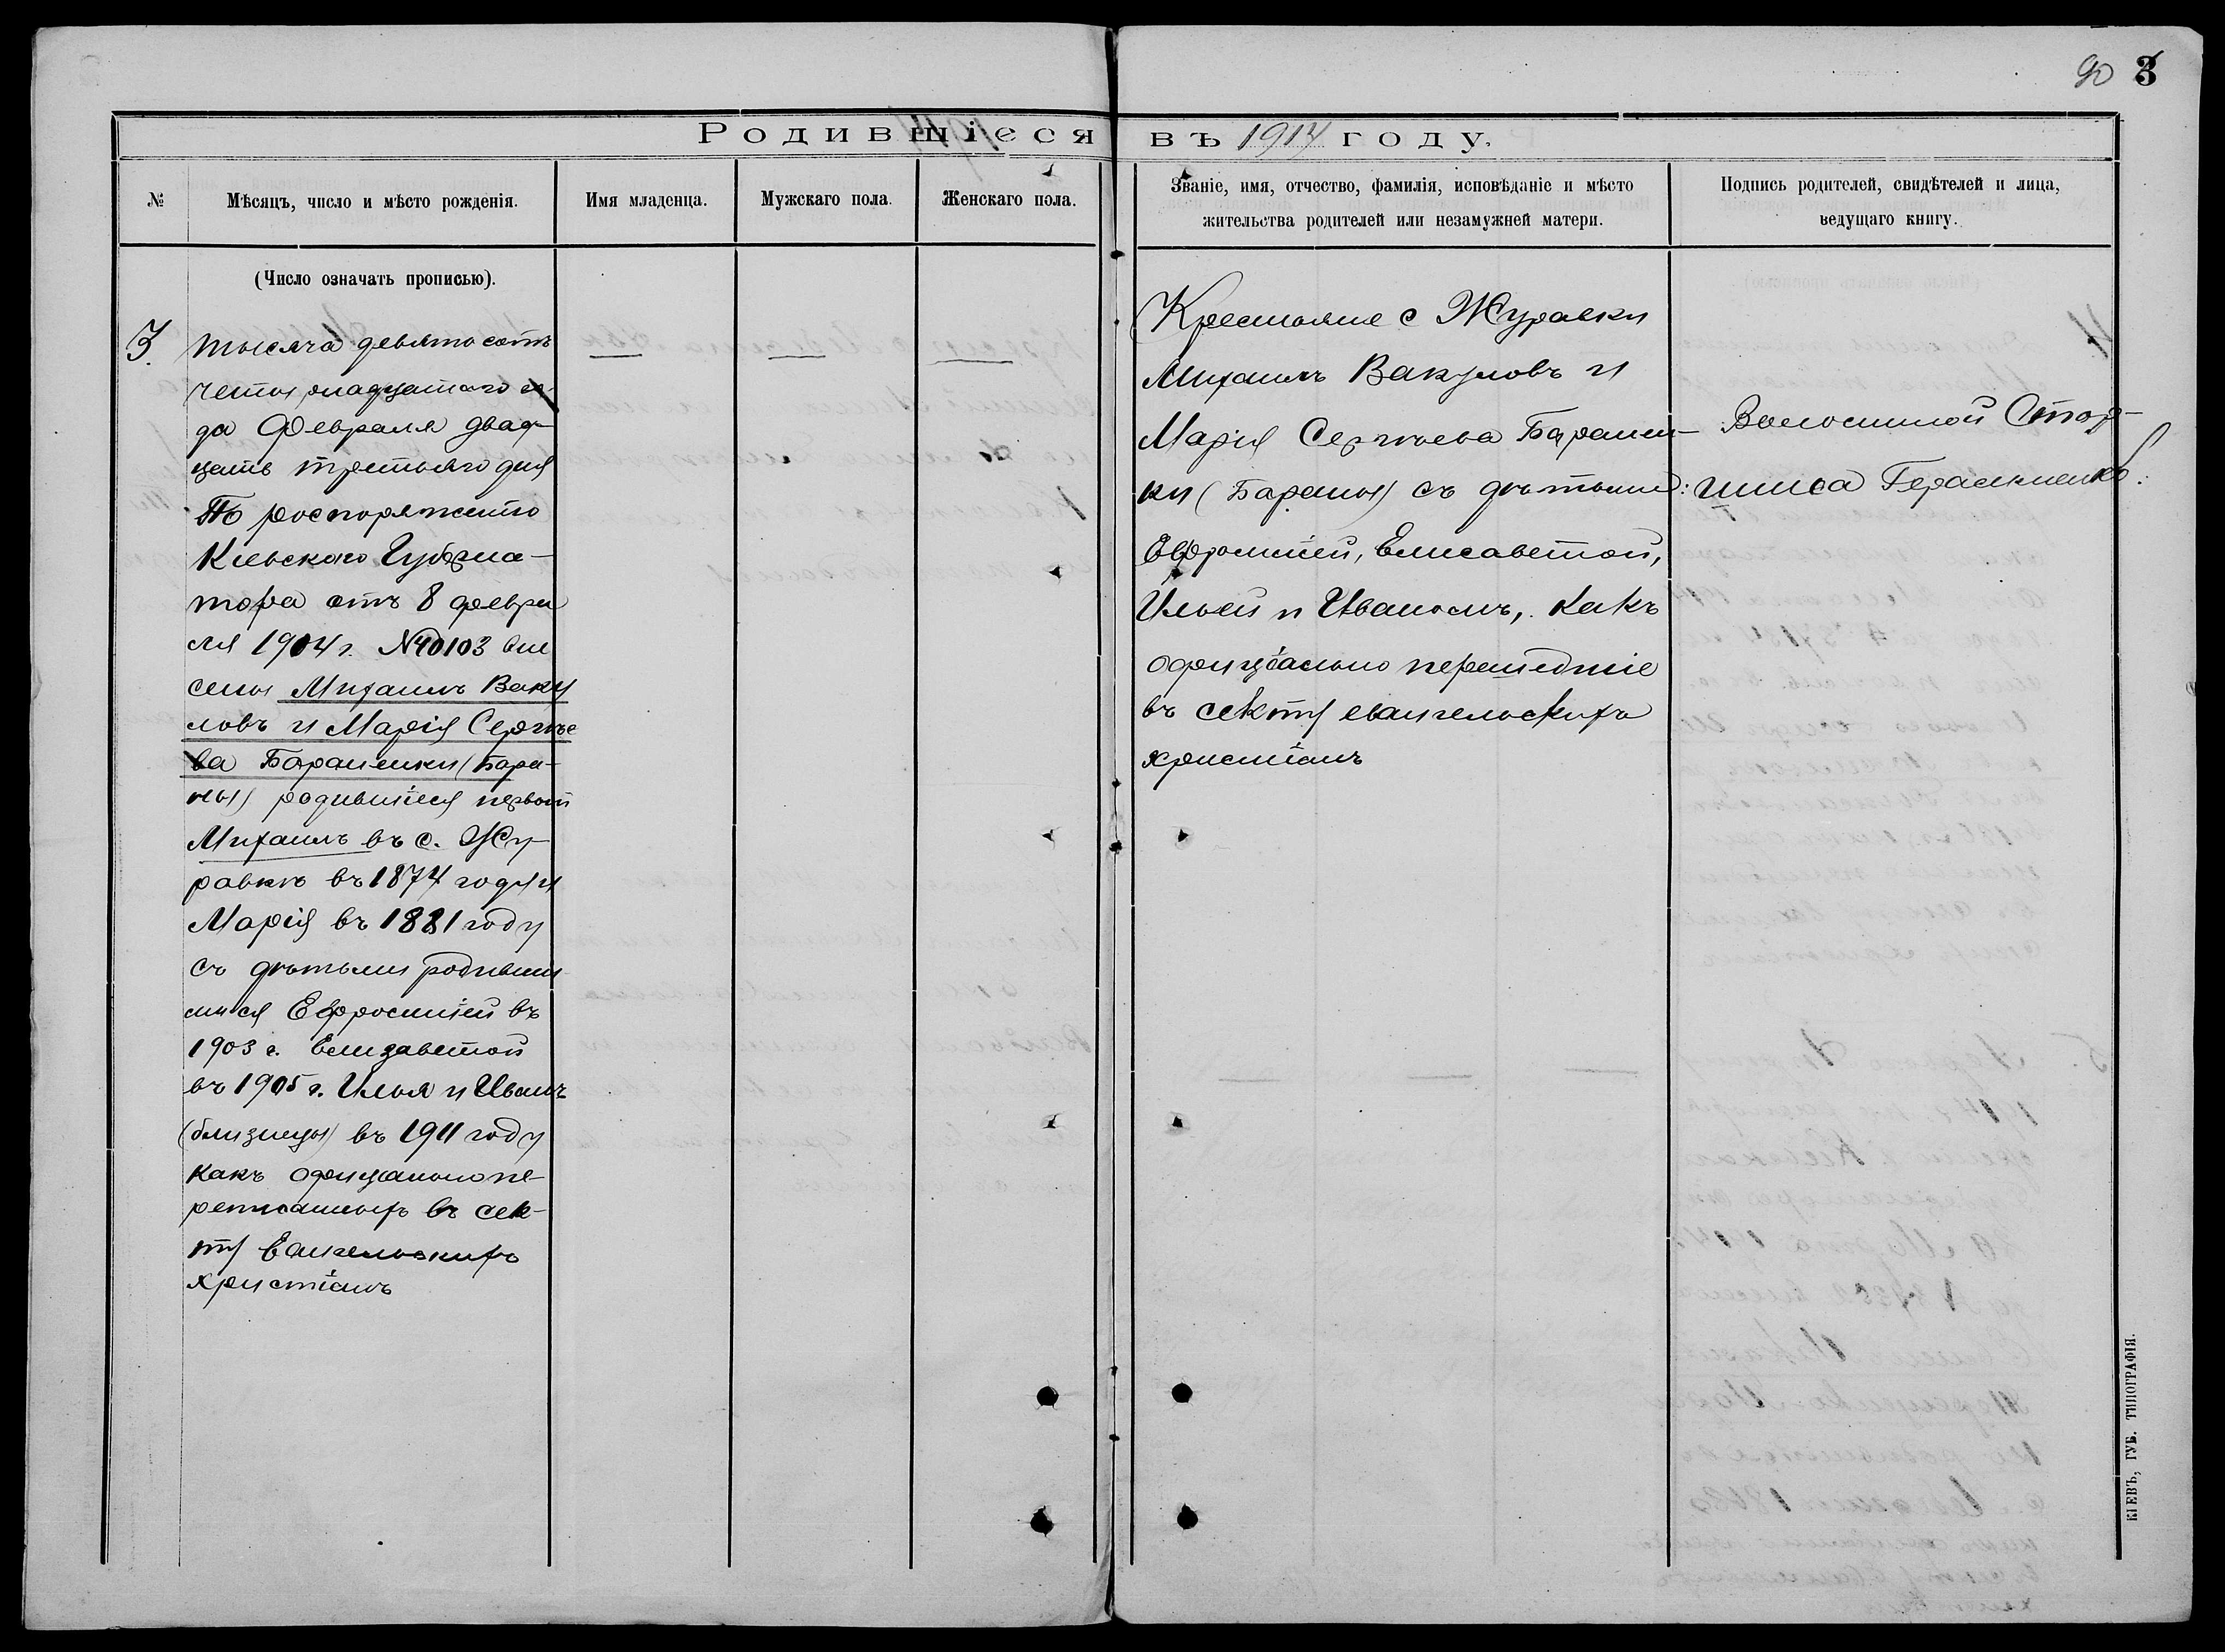 90 3
Родившіеся въ 1914 году.
№
Мѣсяцъ, число и мѣсто рожденія.
Имя младенца.
Мужскаго пола.
Женскаго пола.
Званіе, имя, отчество, фамилія, исповѣданіе и мѣсто
жительства родителей или незамужней матери.
Подпись родителей, свидѣтелей и лица,
ведущаго книгу.
(Число означать прописью).
3.
тысяча девятосотъ
четырнадцатого го-
да Февраля двад-
цать третьяго дня
По роспоряженію
Кіевскаго Губерна-
тора отъ 8 февра
ля 1904 г. № 40103 впи
саны Михаилъ Ваку
ловъ и Марія Сергѣе
ва Бараненки (Бара-
ны) родившіеся первый
Михаилъ въ с. Жу-
равкѣ въ 1874 году и
Марія въ 1881 году
съ дѣтьми родивши
мися Ефросиніей въ
1903 г. Елизаветой
въ 1905 г. Илья и Иванъ
(близнецы) въ 1911 году
какъ офиціально пе-
реписанныхъ въ сек-
ту Евангельскихъ
христіанъ
Крестьяне с Журавки
Михаилъ Вакуловъ и
Марія Сергѣева Баранен-
ки (Бараны) съ дѣтьми:
Ефросиніей, Елисаветой,
Ильей и Иваномъ, какъ
офиціально перешедшіе
въ секту евангельскихъ
христіанъ
Волостной Стар-
шина Герасименко
КІЕВЪ, ГУБ. ТИПОГРАФІЯ.